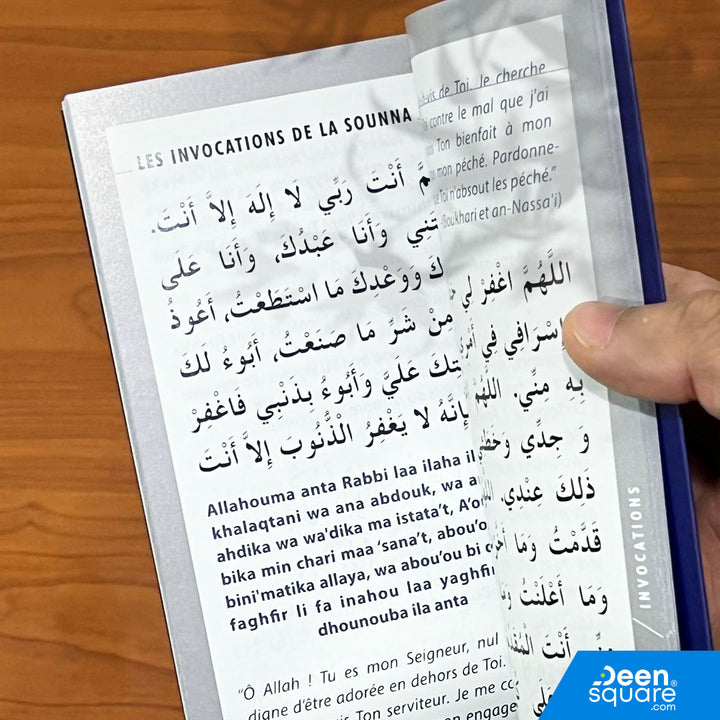 LES INVOCATIONS DE LA SOUNNA
أَنْتَ رَبِّي لَا إِلَهَ إِلاَّ أَنْتَ.
وَأَنَا عَبْدُكَ، وَأَنَا عَلَى
وَوَعْدِكَ مَا اسْتَطَعْتُ، أَعُوذُ
مِنْ شَرِّ مَا صَنَعْتُ، أَبُوءُ لَكَ
عَلَيَّ وَأَبُوءُ بِذَنْبِي فَاغْفِرْ
فَإِنَّهُ لا يَغْفِرُ الْذُّنُوبَ إِلاَّ أَنْتَ
Allahouma anta Rabbi laa ilaha
khalaqtani wa ana abdouk, wa
ahdika wa wa'dika ma istata't, A'o
bika min chari maa 'sana't, abou'o
bini'matika allaya, wa abou'ou bi
faghfir li fa inahou laa yaghfir
dhounouba ila anta
"Ô Allah ! Tu es mon Seigneur, nul
digne d'être adorée en dehors de Toi.
Ton serviteur. Je me
engage
de Toi. Je cherche
contre le mal que j'ai
Ton bienfait à mon
mon péché. Pardonne-
Toi n'absout les péché."
(Boukhari et an-Nassa'i)
اللَّهُمَّ اغْفِرْ لِي
إِسْرَافِي فِي
بِهِ مِنِّي. اللَّهُمَّ
وَ جِدِّي
ذَلِكَ عِنْدِي.
قَدَّمْتُ وَمَا
وَمَا أَعْلَنْتُ
أَنْتَ
INVOCATIONS
Deen
square®
.com